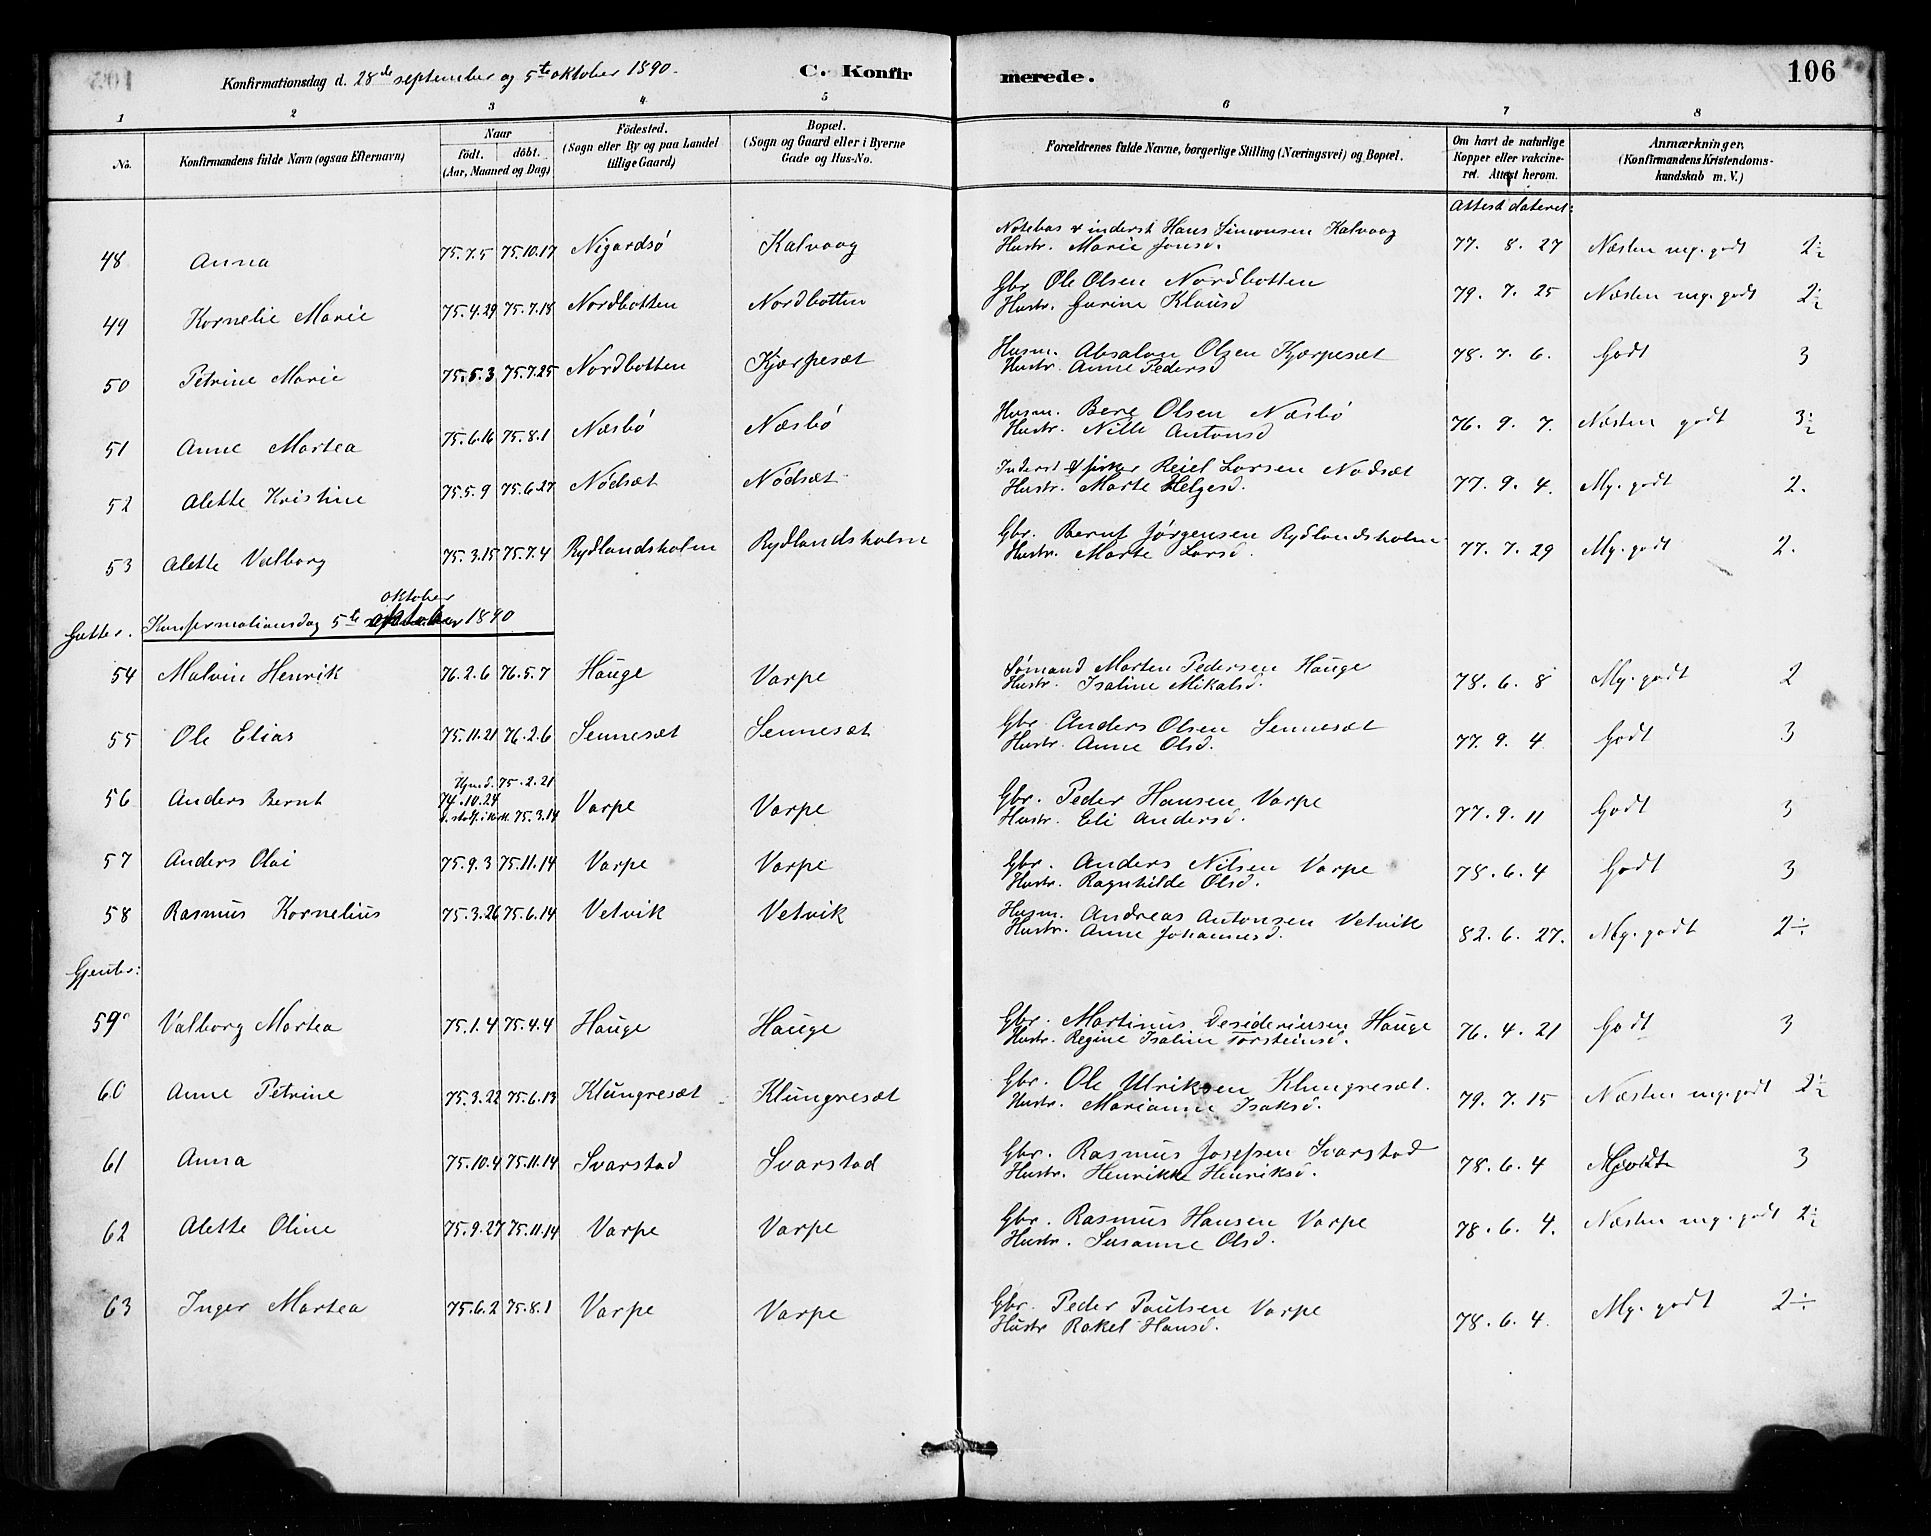 Konfirmationsdag d. 28de september og 5te oktober 1890.
C. Konfirmerede.
106
1 2 3 4 5 6 7 8
No.
Konfirmandens fulde Navn (ogsaa Efternavn)
Naar
født. døbt.
(Aar, Maaned og Dag)
Fødested.
(Sogn eller By og paa Landet
tillige Gaard)
Bopæl.
(Sogn og Gaard eller i Byerne
Gade og Hus-No.
Forældrenes fulde Navne, borgerlige Stilling (Næringsvei) og Bopæl.
Om havt de naturlige
Kopper eller vakcine-
ret. Attest herom.
Anmærkninger.
(Konfirmandens Kristendoms-
kundskab m. V.)
Attest dateret:
48 Anna 75.7.5 75.10.17 Nigardsø Kalvaag Notebas & inderst Hans Simonsen Kalvaag 77. 8. 27 Næsten mg. godt 2÷
Hustr. Marie Jonsd.
49 Kornelie Marie 75.4.29 75.7.18 Nordbotten Nordbotten Gbr Ole Olsen Nordbotten 79. 7. 25 Næsten mg. godt 2÷
Hustr. Gurine Klausd
50 Petrine Marie 75.5.3 75.7.25 Nordbotten Kjærpesæt Husm. Absalon Olsen Kjærpesæt 78. 7. 6. Godt 3
Hustr. Anne Pedersd
51 Anne Martea 75.6.16 75.8.1 Næsbø Næsbø Husm. Bere Olsen Næsbø 76. 9. 7. Næsten godt 3÷
Hustr. Nille Antonsd
52 Alette Kristine 75.5.9 75.6.27 Nødsæt Nødsæt Inderst & fisker Reiel Larsen Nødsæt 77. 9. 4. Mg. godt 2.
Hustr. Marte Helgesd.
53 Alette Valborg 75.3.15 75.7.4 Rydlandsholm Rydlandsholm Gbr. Bernt Jørgensen Rydlandsholm 77. 7. 29 Mg. godt 2.
Hustr. Marte Larsd.
oktober
Gutter. Konfirmationsdag 5te 1890
54 Malvin Henrik 76.2.6 76.5.7 Hauge Varpe Sømand Marten Pedersen Hauge 78. 6. 8 Mg. godt 2
Hustr. Isaline Mikalsd.
55 Ole Elias 75.11.21 76.2.6 Sennesæt Sennesæt Gbr. Anders Olsen Sennesæt 77. 9. 4 Godt 3
Hustr. Anne Olsd.
Hjmd. 75.2.21
56 Anders Bernt 74.10.24 Varpe Varpe Gbr. Peder Hansen Varpe 77. 9. 11 Godt 3
75.3.14 Hustr. Eli Andersd.
57 Anders Olai 75.9.3 75.11.14 Varpe Varpe Gbr. Anders Nilsen Varpe 78. 6. 4 Godt 3
Hustr. Ragnhilde Olsd.
58 Rasmus Kornelius 75.3.26 75.6.14 Vetvik Vetvik Husm. Andreas Antonsen Vetvik 82. 6. 27. Mg. godt 2÷
Hustr. Anne Johannesd.
Gjenter:
59 Valborg Martea 75.1.4 75.4.4 Hauge Hauge Gbr. Martinus Desideriusen Hauge 76. 4. 21 Godt 3
Hustr. Regine Isaline Torsteinsd.
60 Anne Petrine 75.3.22 75.6.13 Klungresæt Klungresæt Gbr. Ole Ulriksen Klungresæt. 79. 7. 15 Næsten mg. godt 2÷
Hustr. Marianne Isaksd.
61 Anna 75.10.4 75.11.14 Svarstad Svarstad Gbr. Rasmus Josefsen Svarstad 78. 6. 4 3
Hustr. Henrikke Henriksd.
62 Alette Oline 75.9.27 75.11.14 Varpe Varpe Gbr. Rasmus Hansen Varpe 78. 6. 4. Næsten mg. godt 2÷
Hustr. Susanne Olsd.
63 Inger Martea 75.6.2 75.8.1 Varpe Varpe Gbr. Peder Paulsen Varpe 78. 6. 4. Mg. godt 2÷
Hustr Rakel Hansd.